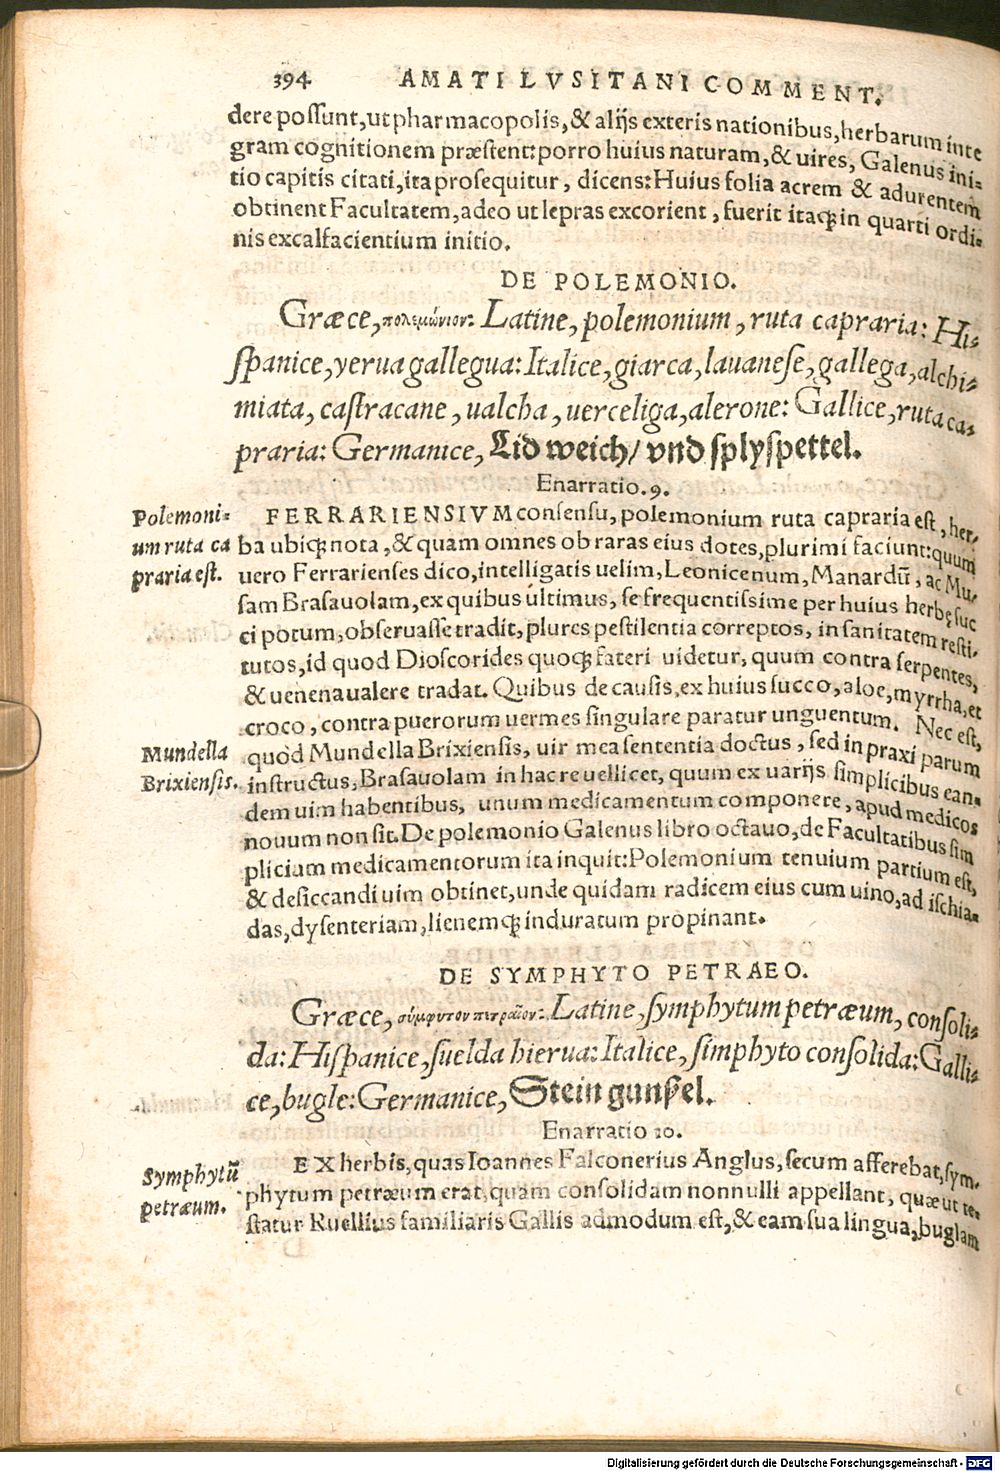 394 AMATI LVSITANI COMMENT.
dere possunt, ut pharmacopolis, & alijs exteris nationibus, herbarum inte
gram cognitionem præstent: porro huius naturam, & uires, Galenus ini-
tio capitis citati, ita prosequitur, dicens: Huius folia acrem & adurentem
obtinent Facultatem, adeo ut lepras excorient, fuerit itaq; in quarti ordi-
nis excalfacientium initio.
DE POLEMONIO.
Græce, πολεμώνιον: Latine, polemonium, ruta capraria: Hi-
spanice, yerua gallegua: Italice, giarca, lauanese, gallega, alchi-
miata, castracane, ualcha, uerceliga, alerone: Gallice, ruta ca-
praria: Germanice, Lid weich/ vnd splyspettel.
Enarratio. 9.
Polemoni-
um ruta ca
praria est.
FERRARIENSIVM consensu, polemonium ruta capraria est, her-
ba ubiq; nota, & quam omnes ob raras eius dotes, plurimi faciunt: quum
uero Ferrarienses dico, intelligatis uelim, Leonicenum, Manardũ, ac Mu-
sam Brasauolam, ex quibus ultimus, se frequentissime per huius herbę suc
ci potum, obseruasse tradit, plures pestilentia correptos, in sanitatem resti-
tutos, id quod Dioscorides quoq; fateri uidetur, quum contra serpentes,
& uenena ualere tradat. Quibus de causis, ex huius succo, aloe, myrrha, et
croco, contra puerorum uermes singulare paratur unguentum. Nec est,
Mundella
Brixiensis.
quod Mundella Brixiensis, uir mea sententia doctus, sed in praxi parum
instructus, Brasauolam in hac re uellicet, quum ex uarijs simplicibus ean-
dem uim habentibus, unum medicamentum componere, apud medicos
nouum non sit. De polemonio Galenus libro octauo, de Facultatibus sim
plicium medicamentorum ita inquit: Polemonium tenuium partium est,
& desiccandi uim obtinet, unde quidam radicem eius cum uino, ad ischia-
das, dysenteriam, lienemq; induratum propinant.
DE SYMPHYTO PETRAEO.
Græce, σύμφυτον πετραῖον: Latine, symphytum petræum, consoli-
da: Hispanice, suelda hierua: Italice, simphyto consolida: Galli-
ce, bugle: Germanice, Stein gunsel.
Enarratio 10.
Symphytũ
petræum.
EX herbis, quas Ioannes Falconerius Anglus, secum afferebat, sym-
phytum petræum erat, quam consolidam nonnulli appellant, quæ ut te-
statur Ruellius familiaris Gallis admodum est, & eam sua lingua, buglam
Digitalisierung gefördert durch die Deutsche Forschungsgemeinschaft - DFG